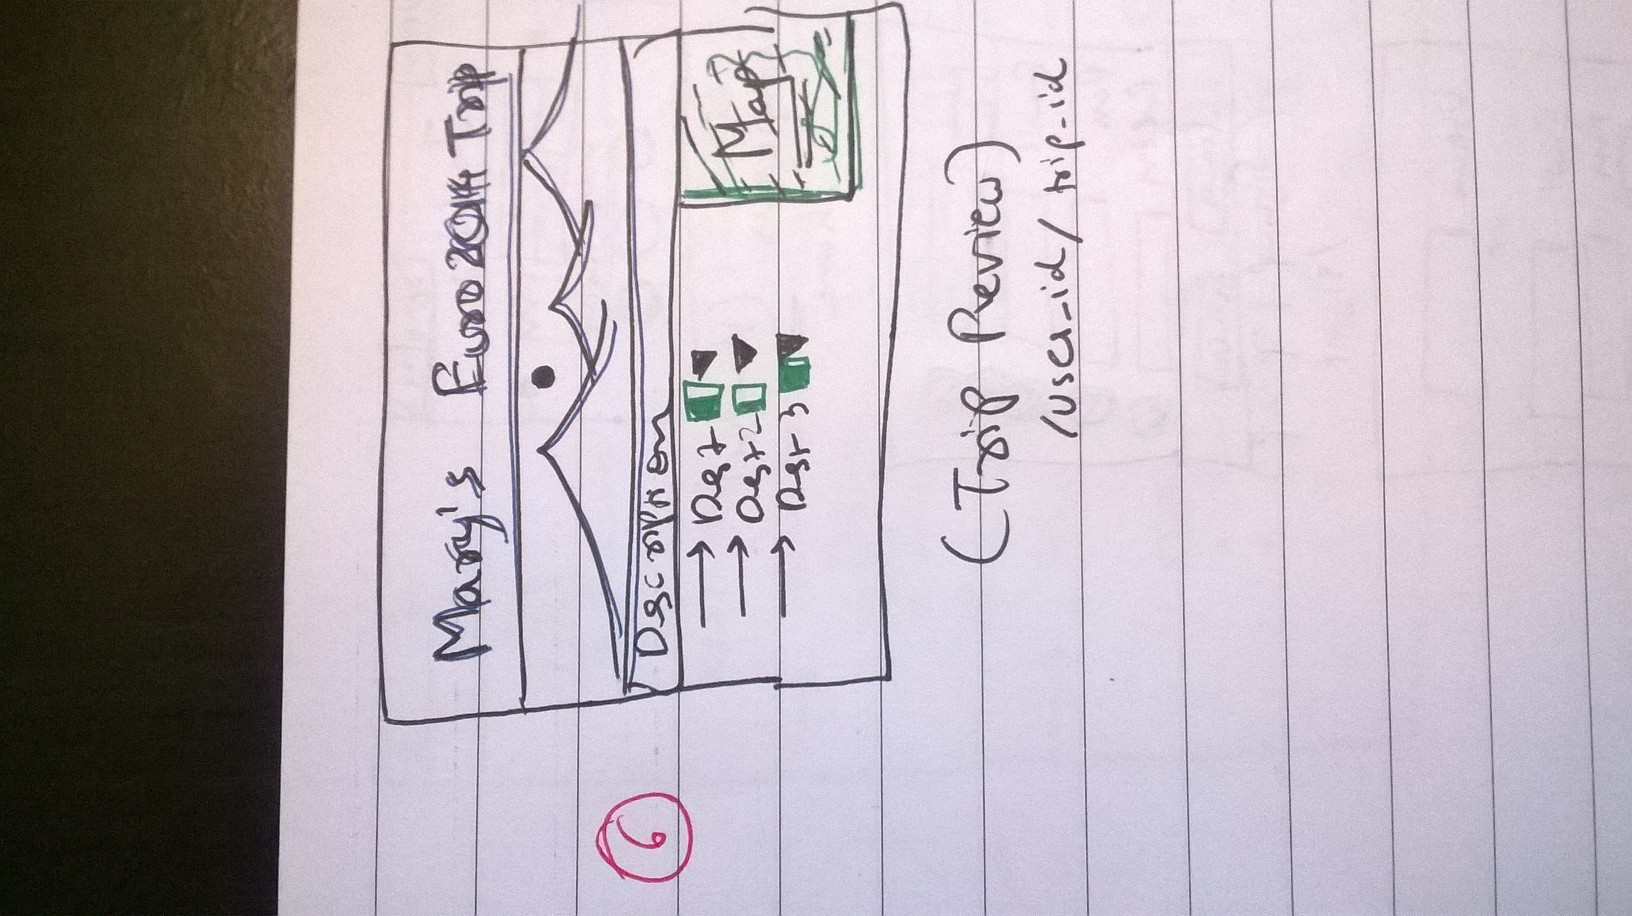 Mary's Euro 2014 Trip
Description
Map
→ Dest
→ Dest 2
→ Dest 3
(Trip Preview)
/user_id/trip_id
6